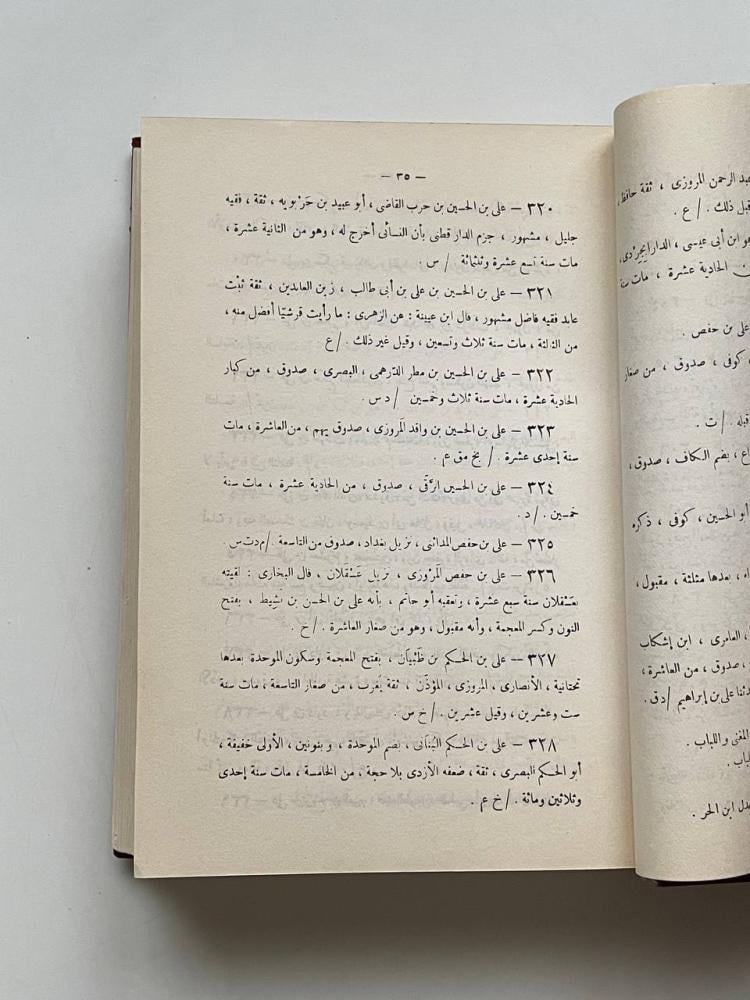 — ٣٥ —
٣٢٠ — على بن الحسين بن حرب القاضى ، أبو عبيد بن حَرْبويه ، ثقة ، فقيه
جليل ، مشهور ، جزم الدار قطنى بأن النسائى أخرج له ، وهو من الثانية عشرة ،
مات سنة تسع عشرة وثلثمائة . / س .
٣٢١ — على بن الحسين بن على بن أبى طالب ، زين العابدين ، ثقة ثبْت
عابد فقيه فاضل مشهور ، قال ابن عيينة : عن الزهرى : ما رأيت قرشيّا أفضل منه ،
من الثالثة ، مات سنة ثلاث وتسعين ، وقيل غير ذلك . / ع
٣٢٢ — على بن الحسين بن مطر الدّرهمى ، البصرى ، صدوق ، من كبار
الحادية عشرة ، مات سنة ثلاث وخمسين / د س .
٣٢٣ — على بن الحسين بن واقد المَروزى ، صدوق يهم ، من العاشرة ، مات
سنة إحدى عشرة . / بخ مق عم .
٣٢٤ — على بن الحسين الرَّقّى ، صدوق ، من الحادية عشرة ، مات سنة
خمسين . / د .
٣٢٥ — على بن حفص المدائنى ، نزيل بغداد ، صدوق من التاسعة . / م د ت س .
٣٢٦ — على بن حفص المَرْوزى ، نزيل عَسْقَلان ، قال البخارى : لقيته
بعَسْقلان سنة سبع عشرة ، وتعقبه أبو حاتم ، بأنه على بن الحسن بن نَشِيط ، بفتح
النون وكسر المعجمة ، وأنه مقبول ، وهو من صغار العاشرة . / خ .
٣٢٧ — على بن الحكم بن ظَبْيان ، بفتح المعجمة وسكون الموحدة بعدها
تحتانية ، الأنصارى ، المروزى ، المؤذّن ، ثقة يُغرب ، من صغار التاسعة ، مات سنة
ست وعشرين ، وقيل عشرين . / خ س .
٣٢٨ — على بن الحكم البُنانى ، بضم الموحدة ، وبنونين ، الأولى خفيفة ،
أبو الحكم البصرى ، ثقة ، ضعفه الأزدى بلا حجة ، من الخامسة ، مات سنة إحدى
وثلاثين ومائة . / خ عم .
عبد الرحمن المروزى ، ثقة حافظ ،
قبل ذلك . / ع .
هو ابن أبى عيسى ، الدارابِجِرْدى ،
الحادية عشرة ، مات سنة
على بن حفص .
، كوفى ، صدوق ، من صغار
قبله . / ت .
بضم الكاف ، صدوق ،
أبو الحسين ، كوفى ، ذكره
، بعدها مثلثة ، مقبول ،
، العامرى ، ابن إشكاب
، صدوق ، من العاشرة ،
على بن إبراهيم / د ق .
المغنى واللباب .
ابن الحر .